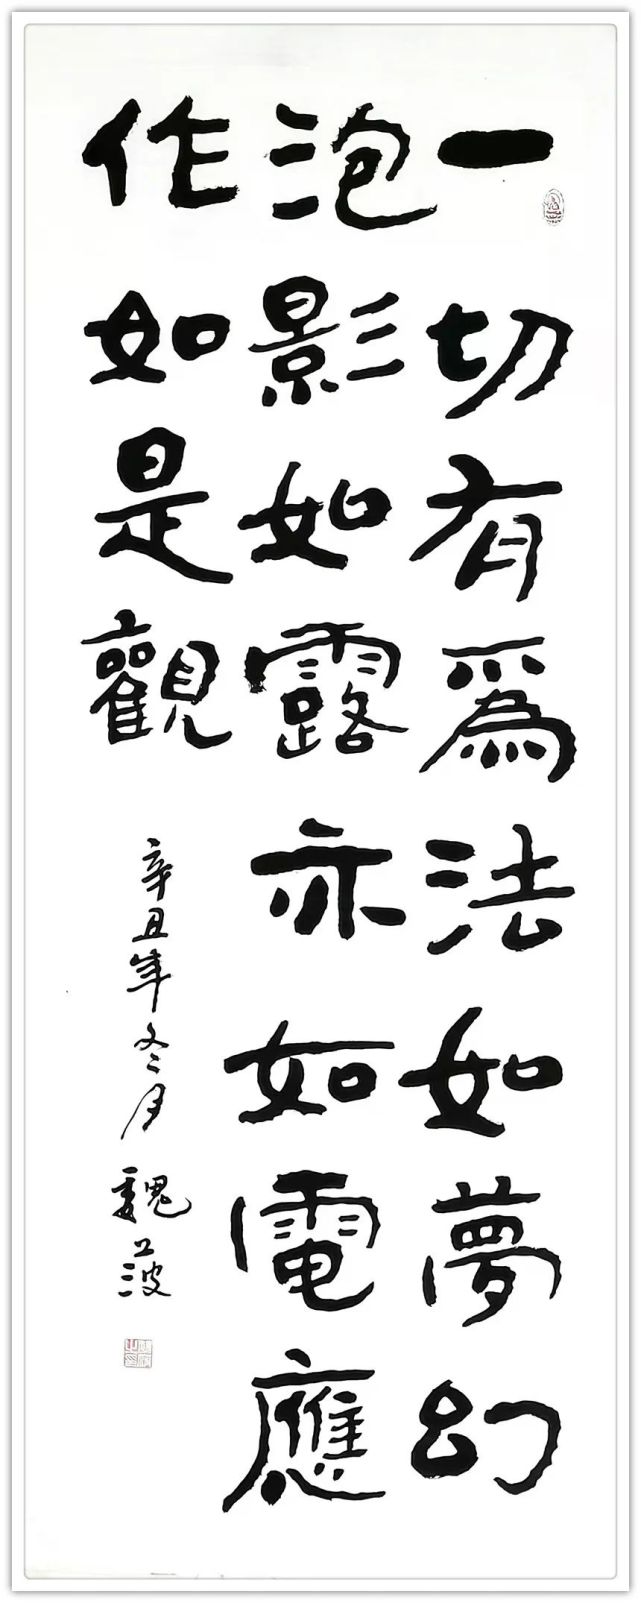 一切有為法如夢幻
泡影如露亦如電應
作如是觀
辛丑年冬月
魏菠